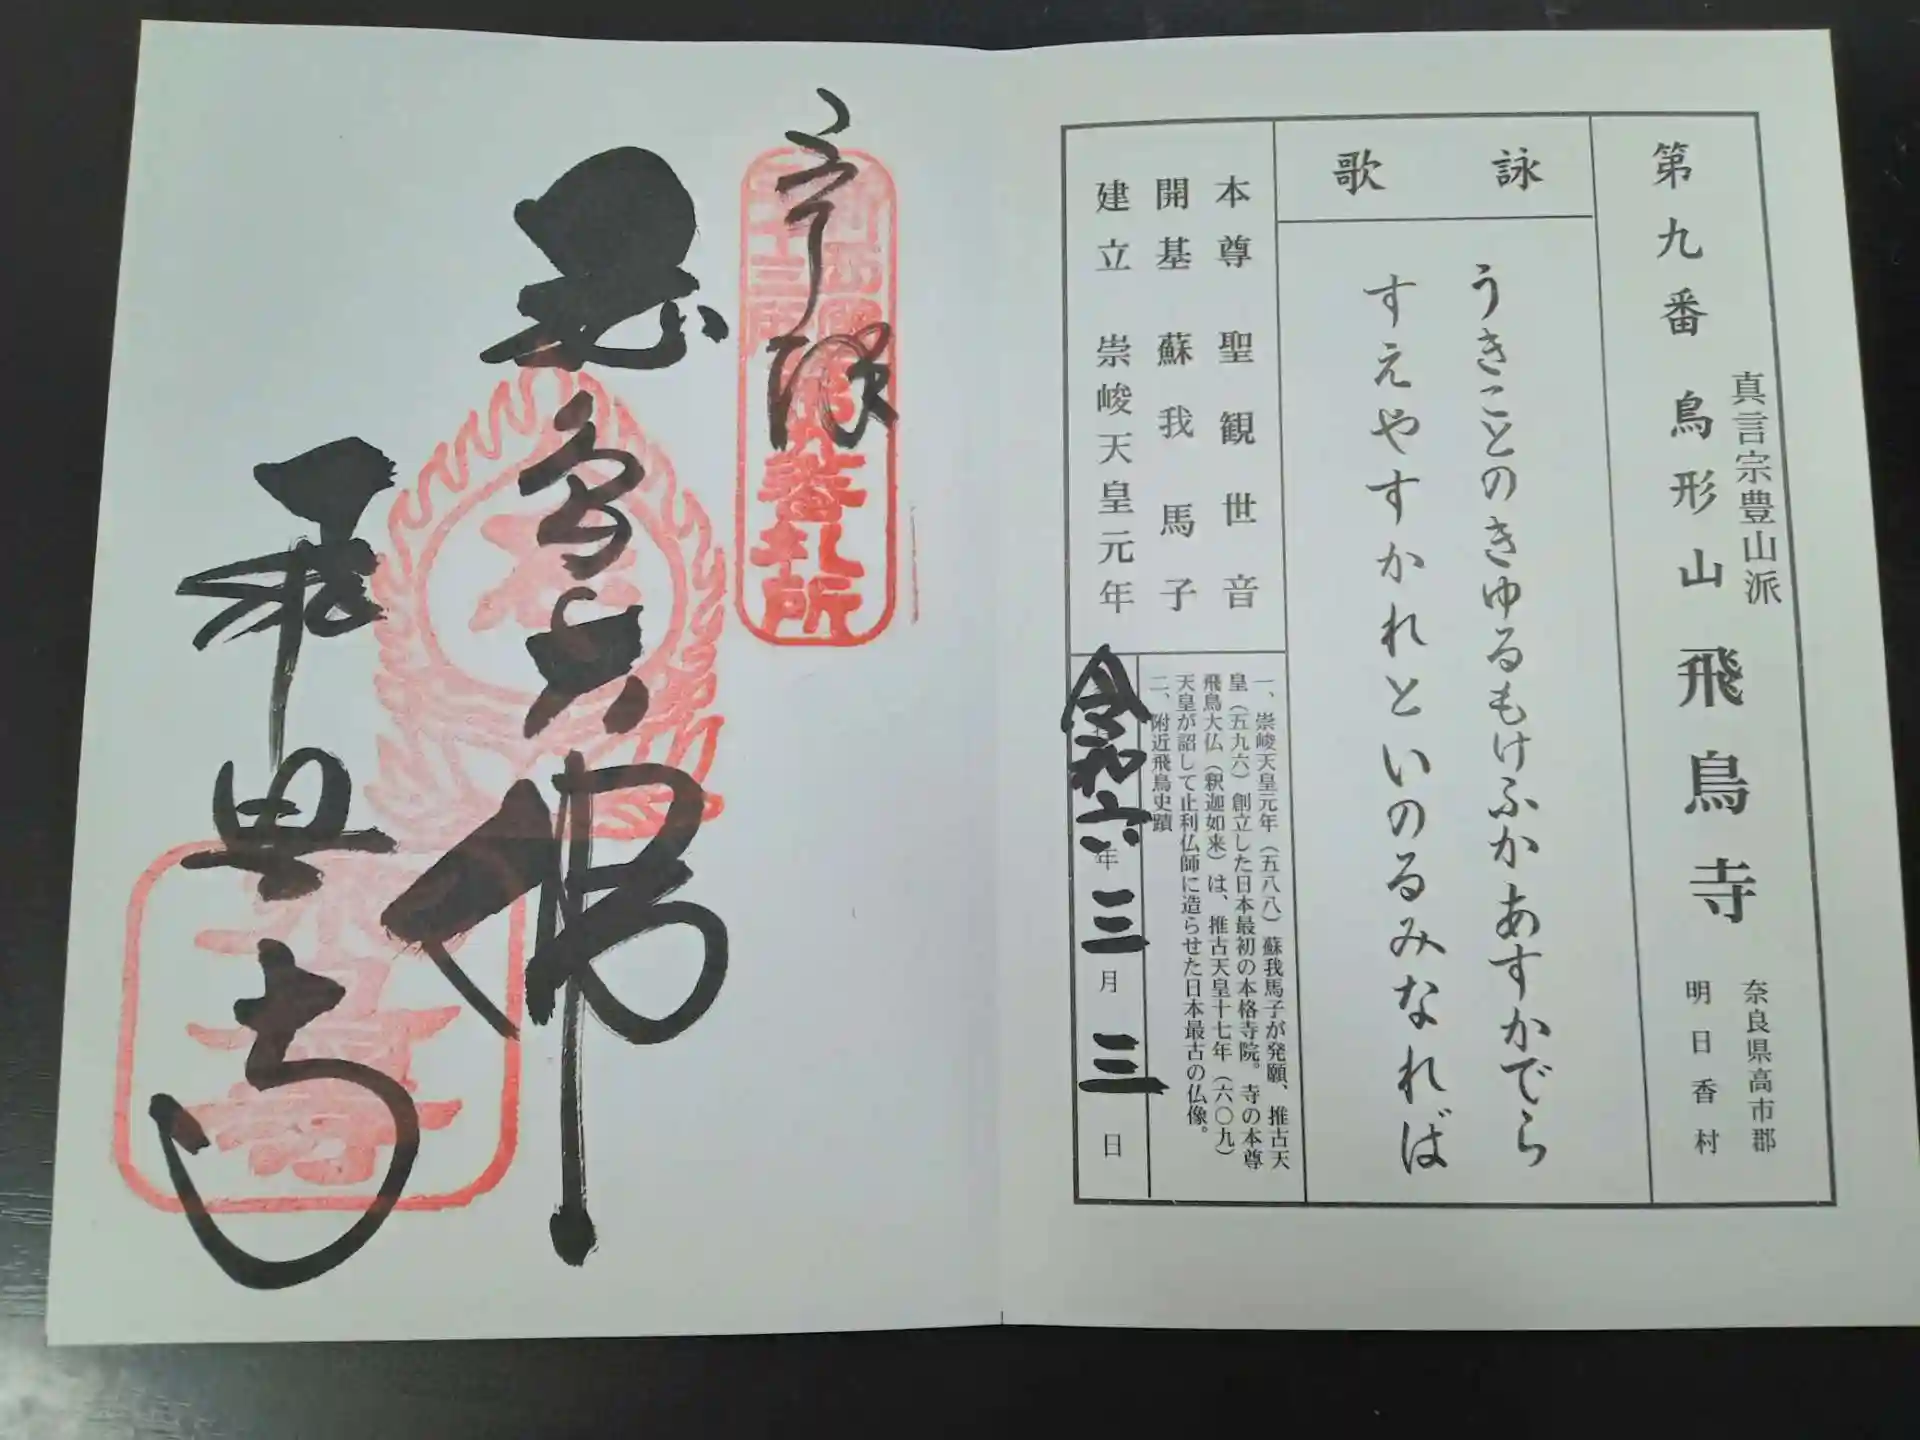 第九番 鳥形山 飛鳥寺
真言宗豊山派
奈良県高市郡
明日香村
詠歌
うきことのきゆるもけふかあすかでら
すえやすかれといのるみなれば
本尊 聖観世音
開基 蘇我馬子
建立 崇峻天皇元年
一、崇峻天皇元年（五八八）蘇我馬子が発願、推古天
皇（五九六）創立した日本最初の本格寺院。寺の本尊
飛鳥大仏（釈迦如来）は、推古天皇十七年（六〇九）
天皇が詔して止利仏師に造らせた日本最古の仏像。
二、附近飛鳥史蹟
令和六年三月三日
奉拝
番札所
飛鳥大佛
飛鳥寺